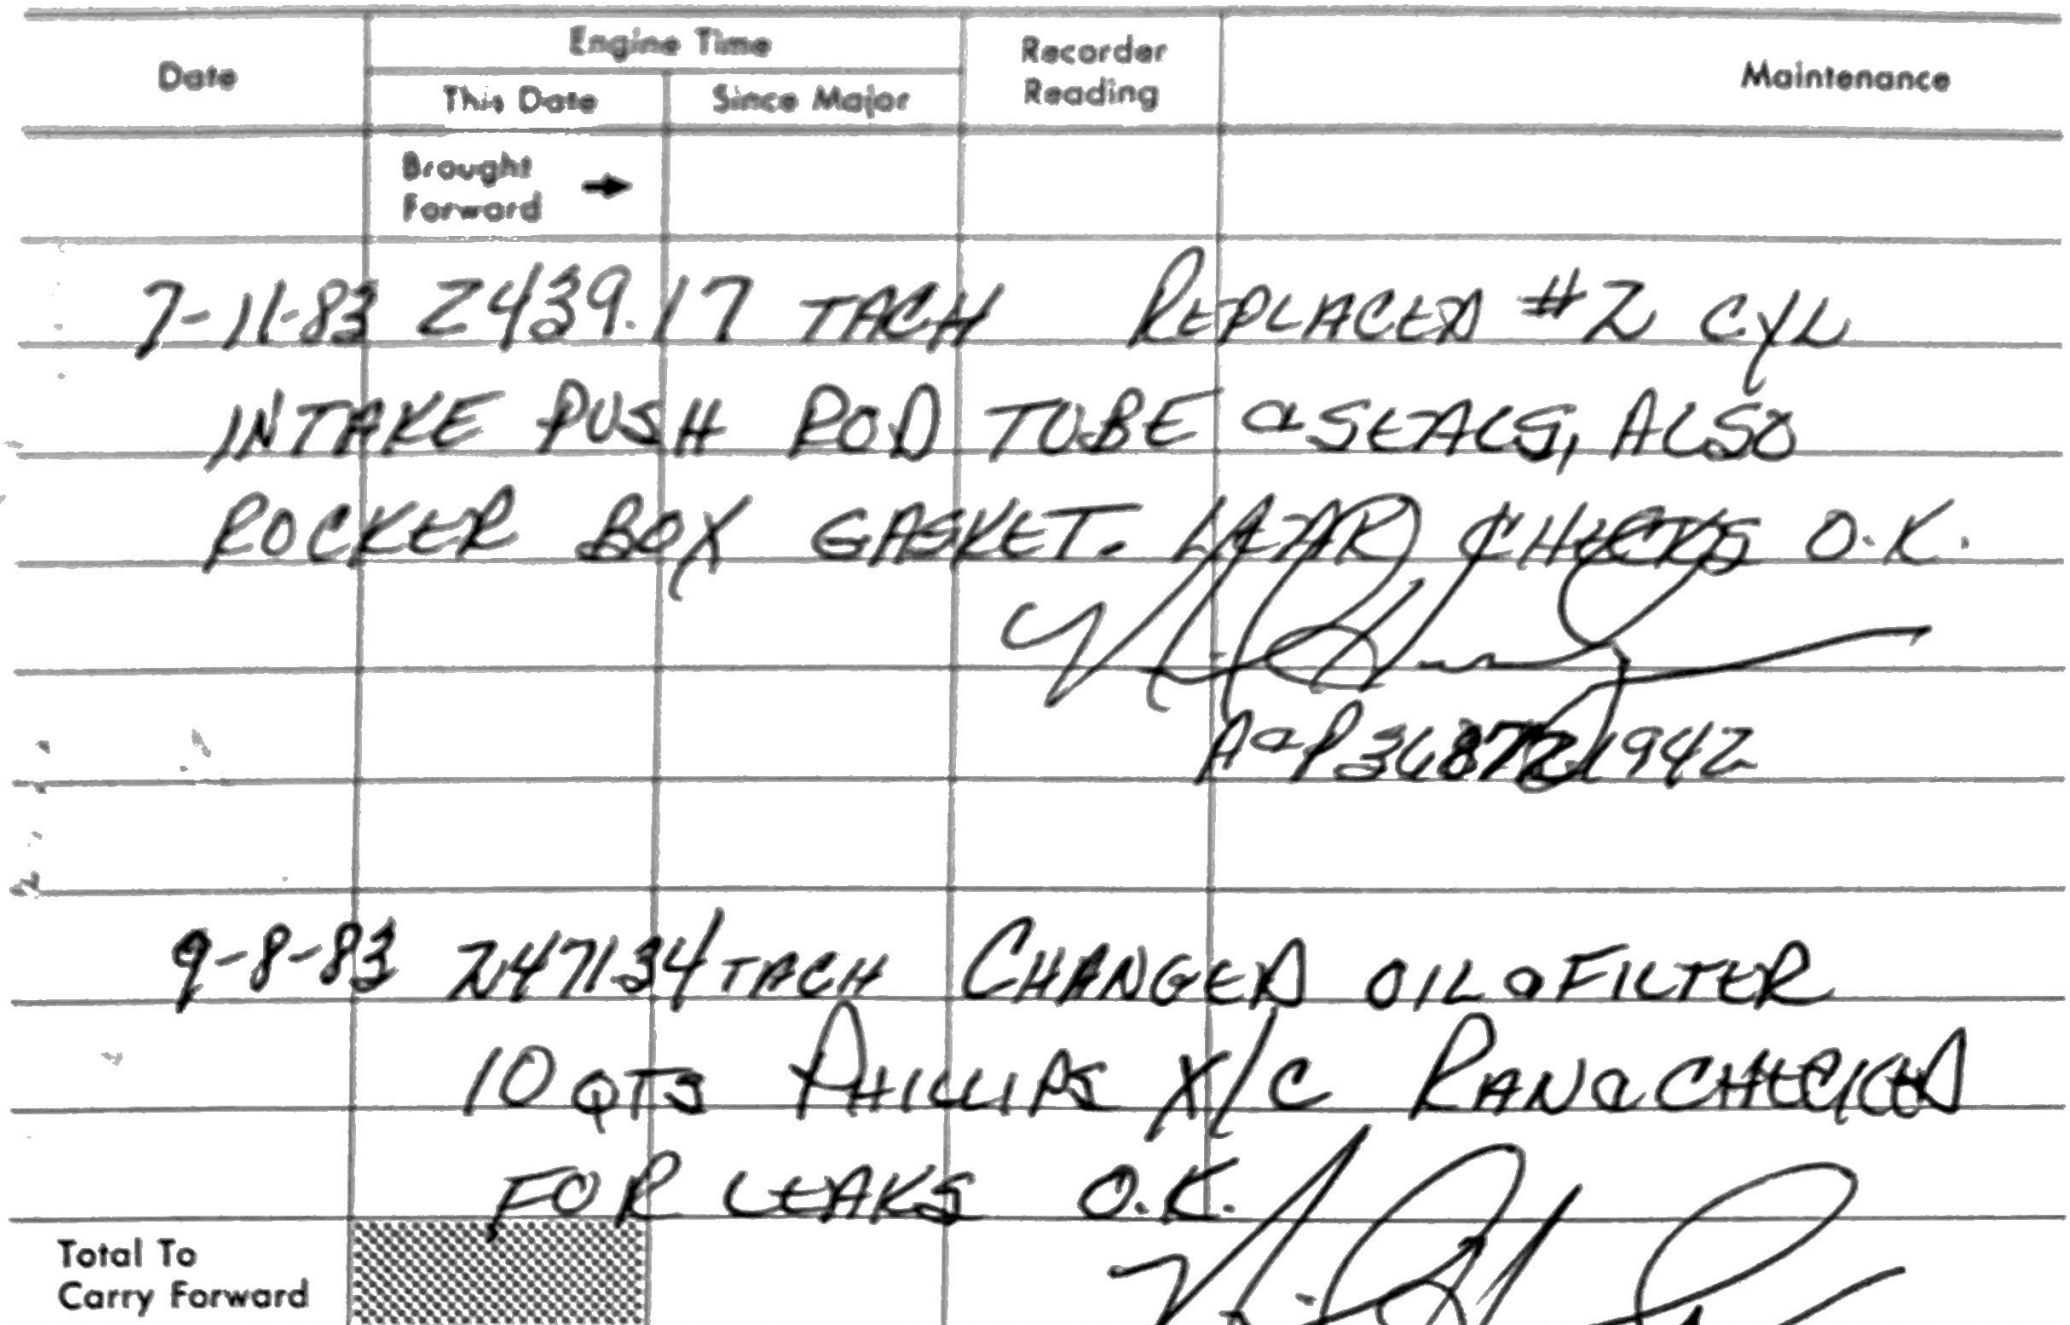 Date Engine Time Recorder Reading Maintenance
This Date Since Major
Brought Forward →
7-11-83 2439.17 TACH REPLACED #2 CYL
INTAKE PUSH ROD TUBE & SEALS, ALSO
ROCKER BOX GASKET. CHECKS O.K.
A&P 1942
9-8-83 247134 TACH CHANGED OIL & FILTER
10 QTS PHILLIPS X/C RAN & CHECKED
FOR LEAKS O.K.
Total To
Carry Forward